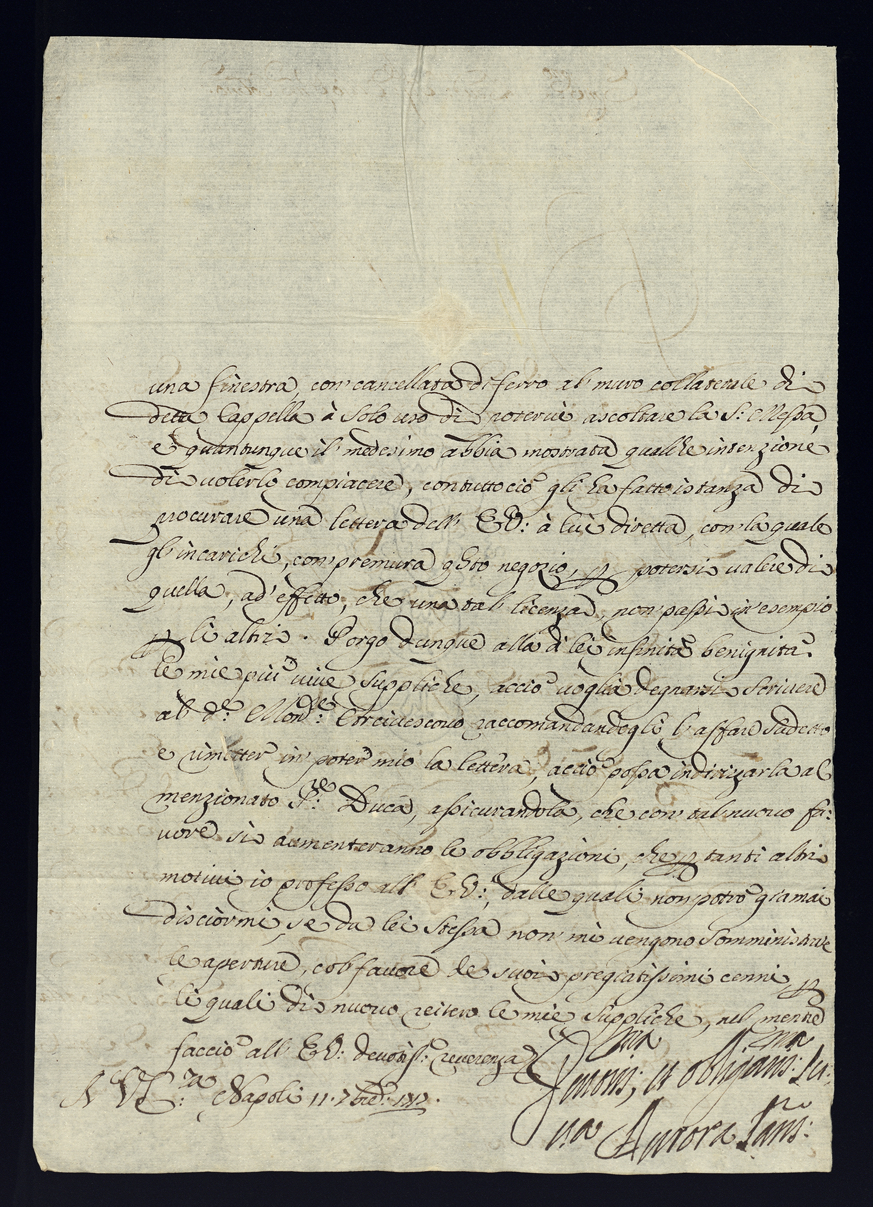 una finestra, con cancellata di ferro al muro collaterale di
detta Cappella à solo uso di potervi ascoltare la S: Messa,
e quantunque il medesimo abbia mostrata qualche intenzione
di volerlo compiacere, contuttociò gli ha fatto istanza di
procurare una lettera dell' E.V: à lui diretta, con la quale
gl'incarichi, con premura qsto negozio, potersi valere di
quella, ad' effetto, che una tal licenza, non passi in' esempio
li altri. Porgo dunque alla di lei infinita benignità
le mie più vive suppliche, acciò voglia degnarsi scrivere
al d: Mons.re Arcivescovo raccomandandogli l'affare sudetto
e rimetter' in' poter' mio la lettera, acciò possa indirizarla al
menzionato S.re: Duca, assicurandola, che con tal nuovo fa:
vore si aumenteranno le obbligazioni, che tanti altri
motivi io professo all' E.V:, dalle quali non potrò giamai
disciormi, se da lei stessa non mi vengono somministrate
le aperture, col favore de suoi pregiatissimi cenni
li quali di nuovo reitero le mie suppliche, nel mentre
faccio all' E.V: devotis: reverenza
Napoli 11. 7bre:
Devotis: et obligatis.ma: Ser:
va Aurora San: